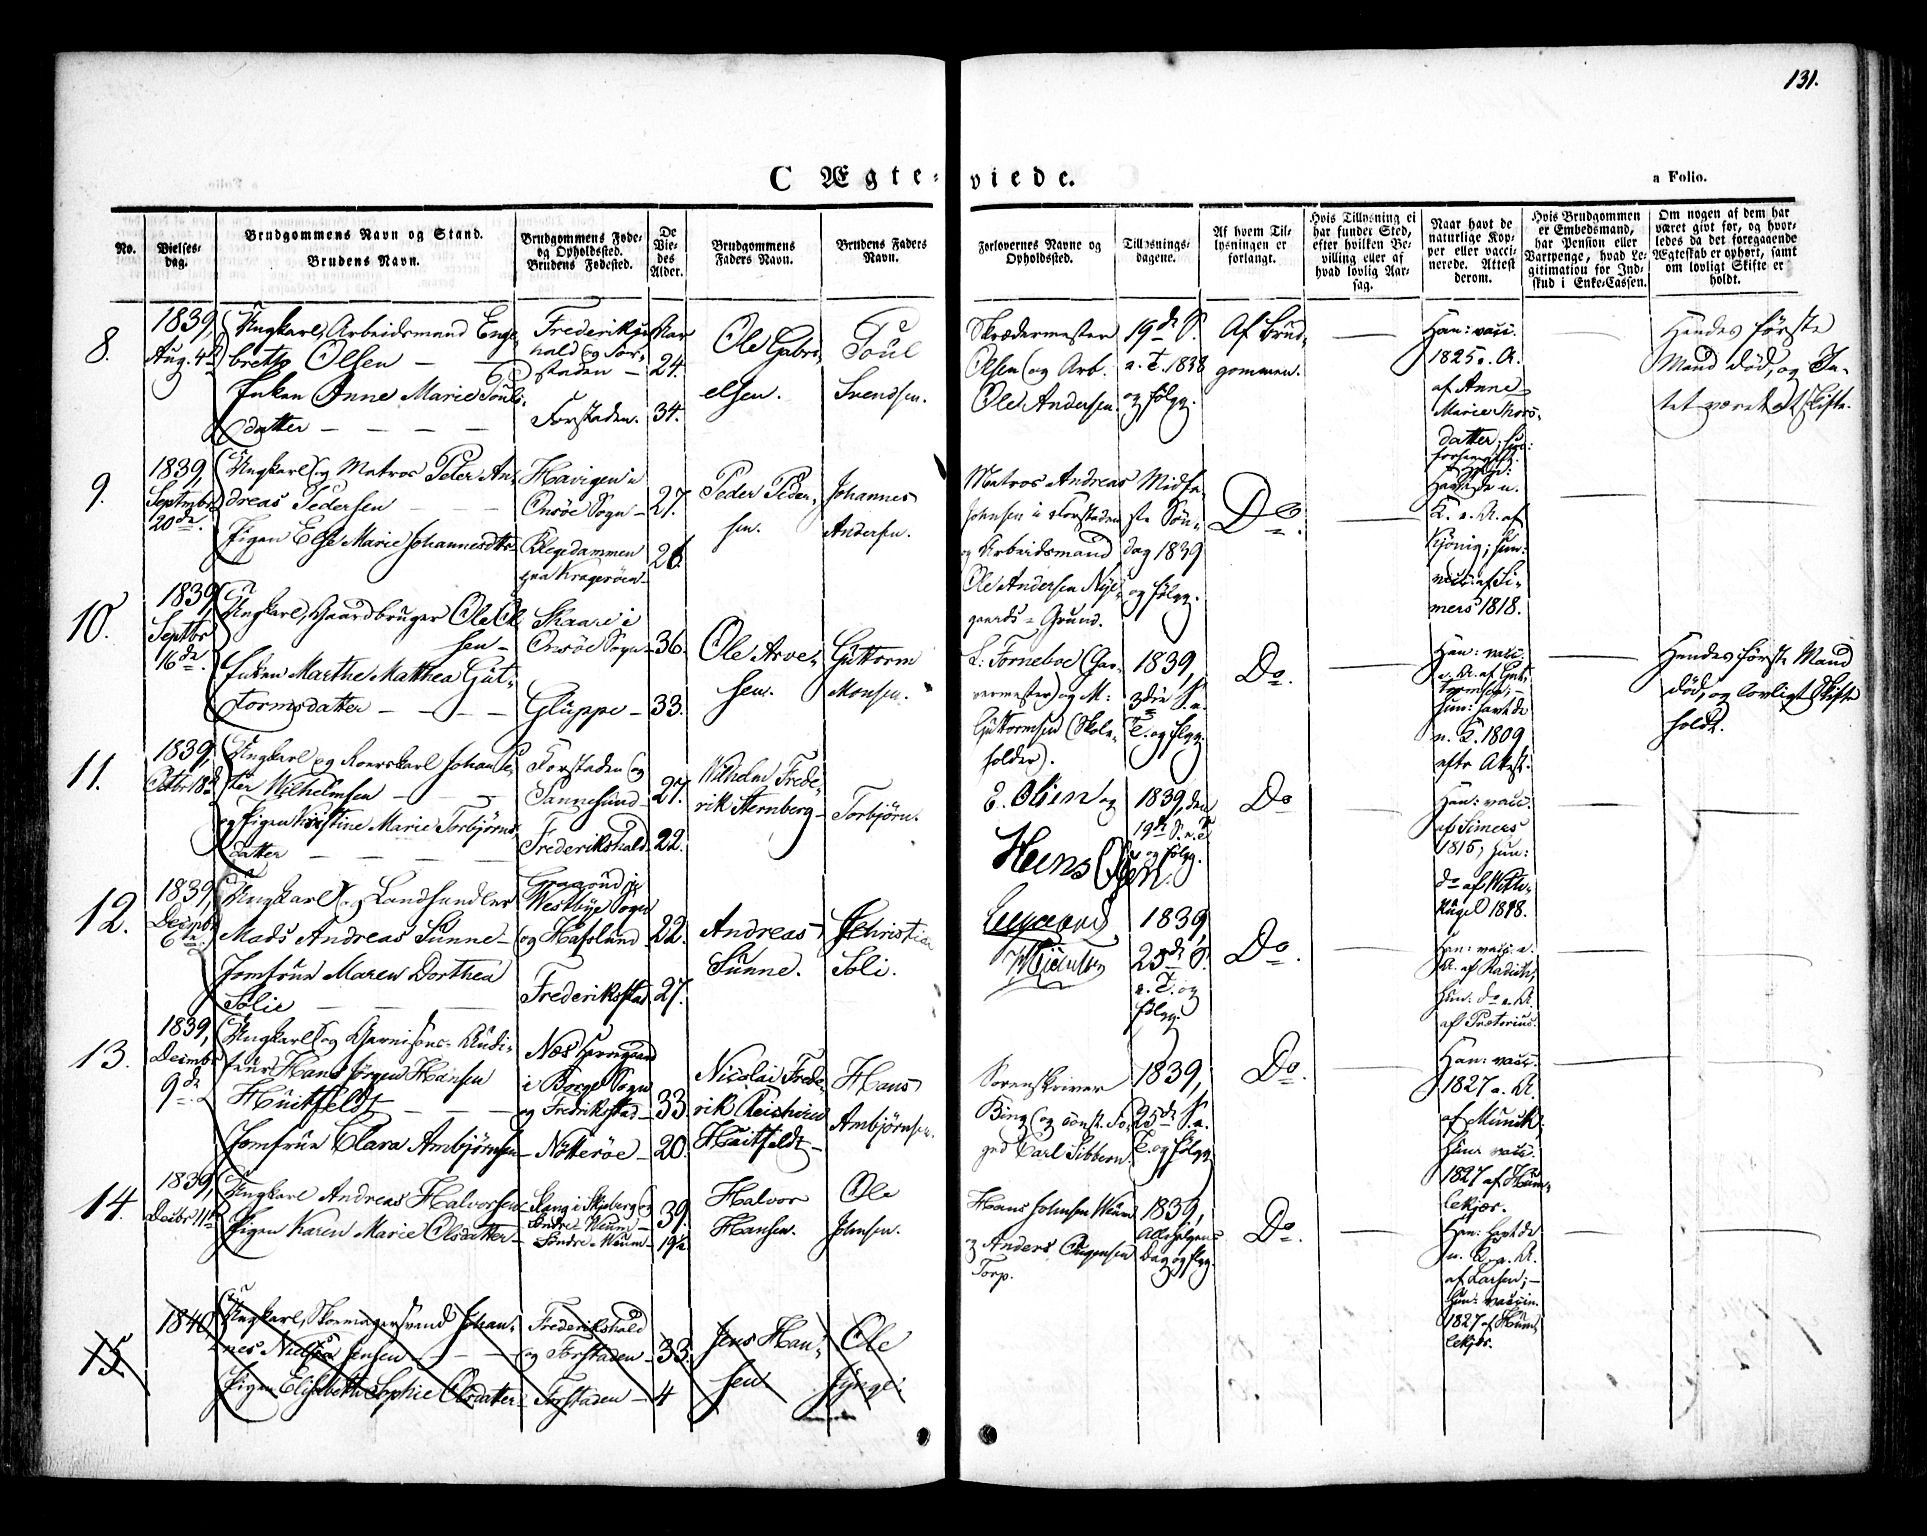 131.
C Ægte-
viede.
a Folio.
No.
Vielses-
dag.
Brudgommens Navn og Stand.
Brudens Navn.
Brudgommens Føde-
og Opholdssted.
Brudens Fødested.
De
Vie-
des
Alder.
Brudgommens
Faders Navn.
Brudens Faders
Navn.
Forlovernes Navne og
Opholdssted.
Tillysnings-
dagene.
Af hvem Til-
lysningen er
forlangt.
Hvis Tillysning ei
har fundet Sted,
efter hvilken Be-
villing eller af
hvad lovlig Aar-
sag.
Naar havt de
naturlige Kop-
per eller vacci-
nerede. Attest
derom.
Hvis Brudgommen
er Embedsmand,
har Pension eller
Vartpenge, hvad Le-
gitimation for Ind-
skud i Enke-Cassen.
Om nogen af dem har
været givt for, og hvor-
ledes da det foregaaende
Ægteskab er ophørt, samt
om lovligt Skifte er
holdt.
8.
1839,
Aug. 4de
Ungkarl, Arbeidsmand Enge-
bretto Olsen
Enken Anne Marie Pouls-
datter
Frederiks-
hald og For-
staden
Forstaden.
24.
34.
Ole Gabri-
elsen.
Poul
Svendsen.
Skrædermester
Olsen og Arb.
Ole Andersen.
19de S.
e. T. 1838
og følg.
Af Brud-
gommen.
Han: vacc.
1825 e. A.
af Anne
Marie Thors-
datter;
Hendes første
Mand død, og In-
tet været at skifte.
9.
1839,
Septmber
20de.
Ungkarl og Matros Peter An-
dreas Pedersen
Pigen Else Marie Johannesdtr
Havigen i
Onsøe Sogn
Blegedammen
paa Kragerøen
27.
26
Peder Peder-
sen.
Johannes
Andersen.
Matros Andreas
Johnsen i Forstaden
og Arbeidsmand
Ole Andersen Nye-
gaards Grund.
Midfa-
ste Søn-
dag 1839
og følg.
Do.
havt de n.
K. e. A. af
Kjönig; hun:
vacc. af Si-
mers 1818.
10.
1839,
Septbr
16de.
Ungkarl, Gaardbruger Ole Ol-
sen
Enken Marthe Mathea Gut-
tormsdatter
Skaare i
Onsøe Sogn
Gluppe
36.
33.
Ole Arve-
sen.
Guttorm
Monsen.
L. Torneboe (Gar-
vermester) og M:
Guttormsen (Skole-
holder).
1839,
3die S. e.
T. og følg.
Do.
Han: vacc.
e. A. af Gut-
tormsen;
hun: havt de
n. K. 1809
efter Attest.
Hendes første Mand
død, og lovligt Skifte
holdt.
11.
1839,
Octbr 18de
Ungkarl og Roerskarl Johan Pe-
ter Wilhelmsen
og Pigen Kirstine Marie Torbjørns-
datter
Forstaden og
Sannesund
Frederikshald
27.
22.
Wilhelm Frede-
rik Sternberg
Torbjørn.
E. Olsen og
Hans Olsen.
1839, den
19de S. e. T.
og følg.
Do
Han: vacc.
af Simers
1815; hun:
do af Witte-
kugel 1818.
12.
1839,
Decmbr
6te.
Ungkarl, Landhandler
Mads Andreas Sunne
Jomfrue Maren Dorthea
Solie
Westbye Sogn
og Hafslund
Frederikstad
22.
27.
Andreas
Sunne.
Christian
Soli.
1839,
25de S.
e. T. og
følg.
Do.
Han: vacc. e.
A. af Radich.
Hun: do e. A.
af Prætorius.
13.
1839,
Decmbr
9de.
Ungkarl og Garnisons Audi-
teur Hans Jørgen Hansen
Huitfeldt
Jomfrue Clara Ambjørnsen
Næs Herregaard
i Borge Sogn
og Fredrikstad
Nøtterøe
33.
20.
Nicolai Frede-
rik
Huitfeldt
Hans
Ambjørnsen.
Sorenskriver
Bing og const. Fo-
ged Carl Sibbern.
1839,
25de S. e.
T. og følg.
Do.
Han: vacc.
1827 e. A.
af Munch;
Hun vacc.
1827 af Hum-
lekjær.
14.
1839,
Decbr 11te
Ungkarl Andreas Halvorsen
Pigen Karen Marie Olsdatter
i Skjeberg og
Søndre Weum
Søndre Weum
39.
19½
Halvor
Hansen.
Ole
Johnsen.
Hans Johnsen Weum
og Anders Augensen
Torp.
1839,
Allehelgens
Dag og flg.
Do.
Han: havt de
n. K. e. A.
af Larsen;
Hun: vaccin.
1827 af Hum-
lekjær.
15.
1840,
Ungkarl, Skomagersvend Johan-
nes Jensen
Pigen Elisabeth Sophie Olsdatter
Frederikshald
og Forstaden
Forstaden
33.
4
Jens Han-
sen.
Ole